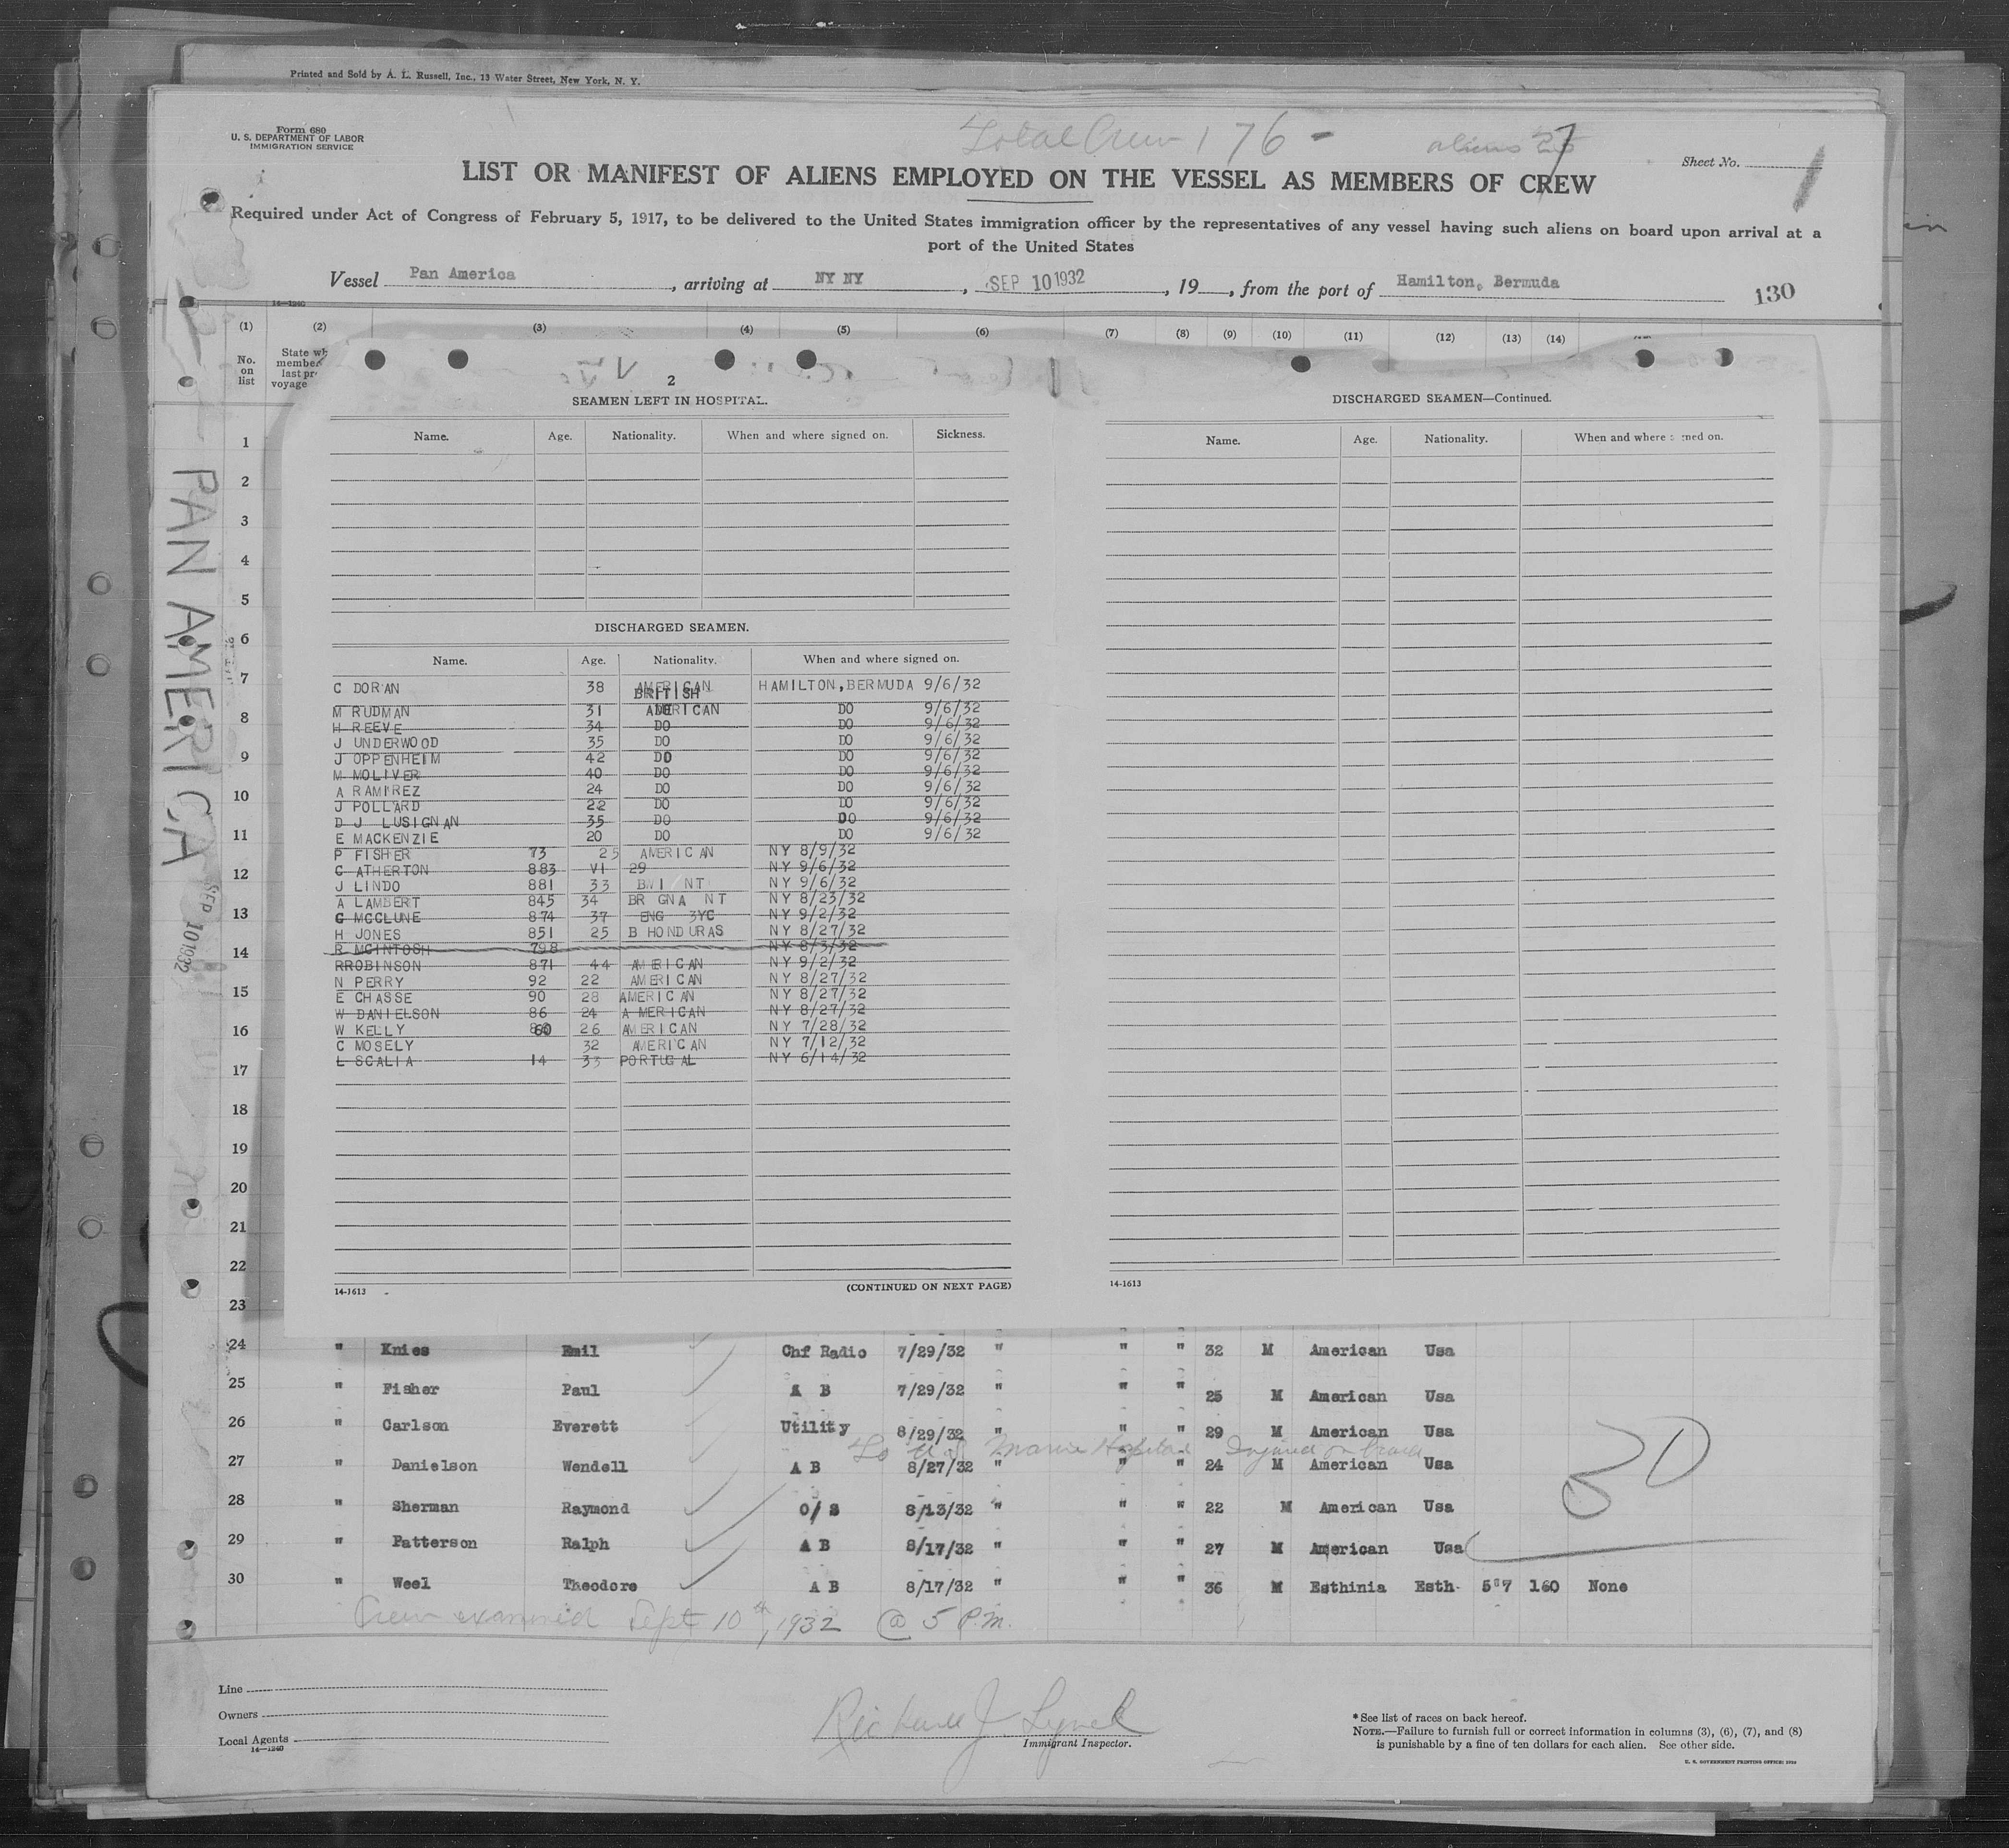 Printed and Sold by A. L. Russell, Inc., 13 Water Street, New York, N. Y.
Form 680
U. S. DEPARTMENT OF LABOR
IMMIGRATION SERVICE
Total Crew 176 -
aliens
Sheet No. 1
LIST OR MANIFEST OF ALIENS EMPLOYED ON THE VESSEL AS MEMBERS OF CREW
Required under Act of Congress of February 5, 1917, to be delivered to the United States immigration officer by the representatives of any vessel having such aliens on board upon arrival at a
port of the United States
Vessel Pan America, arriving at NY NY, SEP 10 1932, 19, from the port of Hamilton, Bermuda
130
14-1240
(1) (2) (3) (4) (5) (6) (7) (8) (9) (10) (11) (12) (13) (14)
No. on list
State wh
member
last pr
voyage
PAN AMERICA
SEP 10 1932
2
SEAMEN LEFT IN HOSPITAL.
Name. Age. Nationality. When and where signed on. Sickness.
DISCHARGED SEAMEN.
Name. Age. Nationality. When and where signed on.
C DORAN 38 AMERICAN BRITISH HAMILTON, BERMUDA 9/6/32
M RUDMAN 31 AMERICAN DO 9/6/32
H REEVE 34 DO DO 9/6/32
J UNDERWOOD 35 DO DO 9/6/32
J OPPENHEIM 42 DO DO 9/6/32
M MOLIVER 40 DO DO 9/6/32
A RAMIREZ 24 DO DO 9/6/32
J POLLARD 22 DO DO 9/6/32
D J LUSIGNAN 35 DO DO 9/6/32
E MACKENZIE 20 DO DO 9/6/32
P FISHER 73 25 AMERICAN NY 8/9/32
C ATHERTON 883 VI 29 NY 9/6/32
J LINDO 881 33 NT NY 9/6/32
A LAMBERT 845 34 BR GNA NT NY 8/23/32
G MCCLUNE 874 37 ENG 3YC NY 9/2/32
H JONES 851 25 B HONDURAS NY 8/27/32
R MCINTOSH 798 NY 8/3/32
RROBINSON 871 44 AMERICAN NY 9/2/32
N PERRY 92 22 AMERICAN NY 8/27/32
E CHASSE 90 28 AMERICAN NY 8/27/32
W DANIELSON 86 24 AMERICAN NY 8/27/32
W KELLY 60 26 AMERICAN NY 7/28/32
C MOSELY 32 AMERICAN NY 7/12/32
L SCALIA 14 33 PORTUGAL NY 6/14/32
14-1613
(CONTINUED ON NEXT PAGE)
DISCHARGED SEAMEN—Continued.
Name. Age. Nationality. When and where signed on.
14-1613
1
2
3
4
5
6
7
8
9
10
11
12
13
14
15
16
17
18
19
20
21
22
23
24 " Knies Emil Chf Radio 7/29/32 " " " 32 M American Usa
25 " Fisher Paul A B 7/29/32 " " " 25 M American Usa
26 " Carlson Everett Utility 8/29/32 " " " 29 M American Usa
To U.S. Marine Hospital Injured on board
27 " Danielson Wendell A B 8/27/32 " " " 24 M American Usa
28 " Sherman Raymond O/S 8/13/32 " " " 22 M American Usa
29 " Patterson Ralph A B 8/17/32 " " " 27 M American Usa
30 " Weel Theodore A B 8/17/32 " " " 36 M Esthinia Esth 5"7 160 None
30
Crew examined Sept 10th, 1932 @ 5 P.M.
Line
Owners
Local Agents
14-1240
Richard J. Lynch
Immigrant Inspector.
* See list of races on back hereof.
NOTE.—Failure to furnish full or correct information in columns (3), (6), (7), and (8)
is punishable by a fine of ten dollars for each alien. See other side.